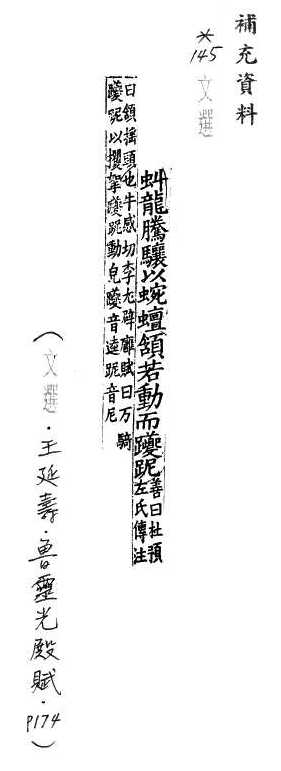 補充資料
*145 文選
虯龍騰驤以蜿蟺頷若動而躨跜善曰杜預
左氏傳注
曰頷搖頭也牛感切李尤辟雍賦曰万騎
躨跜以攫挐躨跜動皃躨音逵跜音尼
（文選．王延壽．魯靈光殿賦．P174）